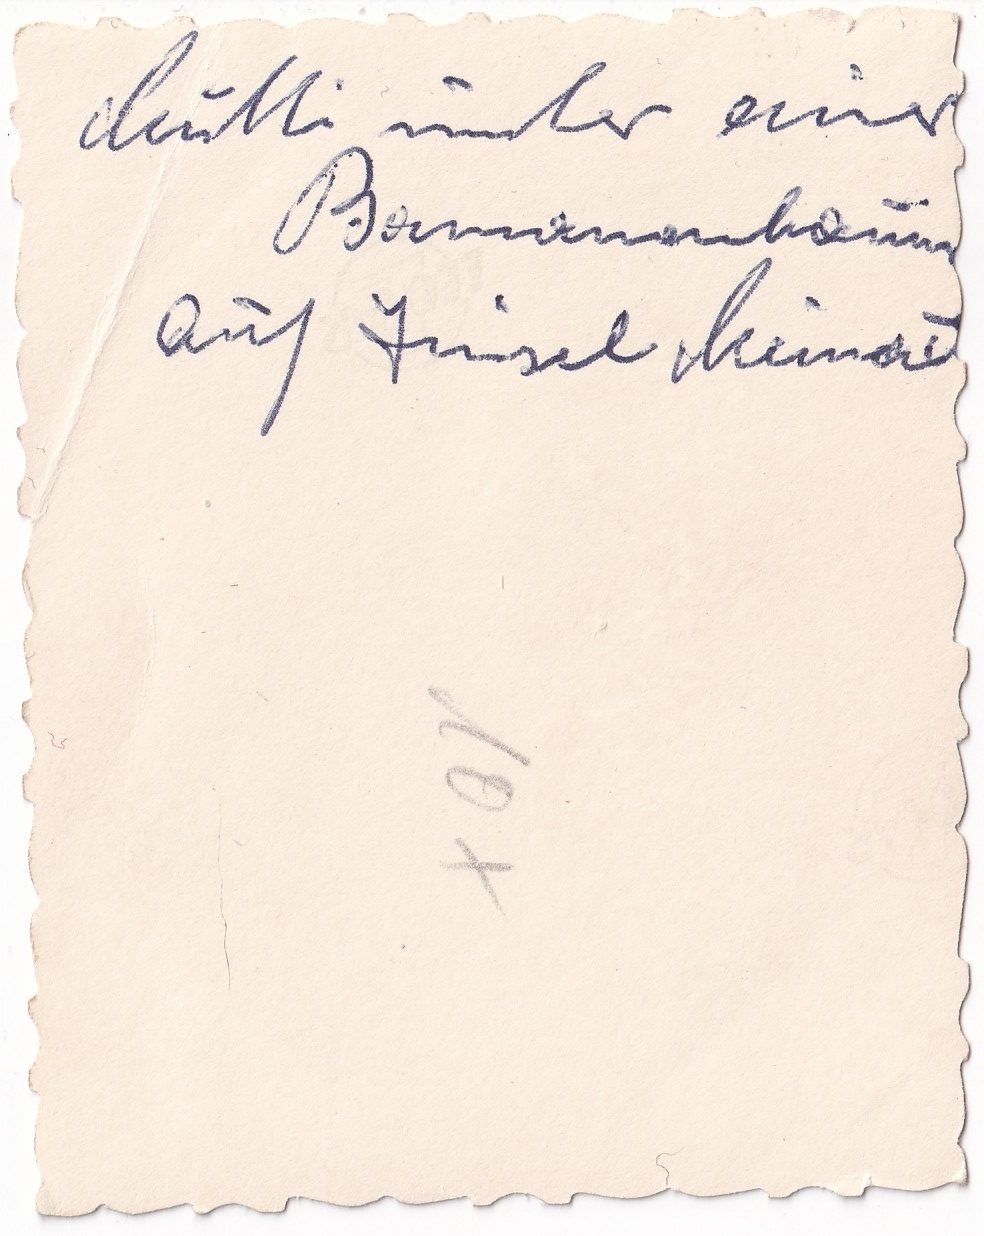 Mutti unter einer
Bananenbaum
auf Insel Meinau
10x